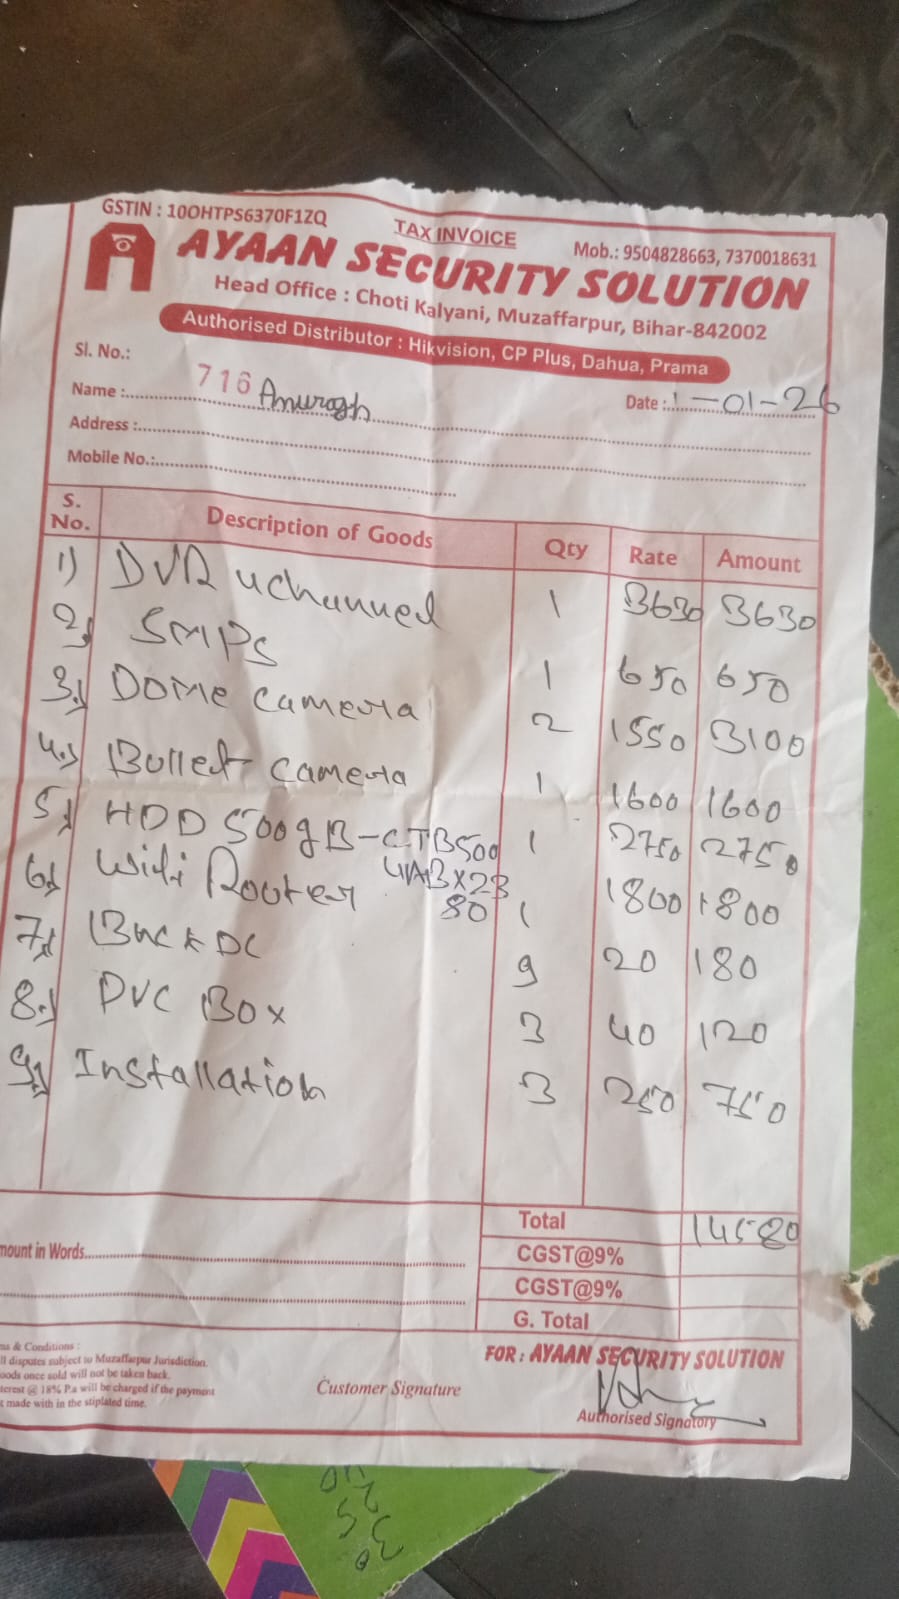 GSTIN : 10OHTPS6370F1ZQ
TAX INVOICE
Mob.: 9504828663, 7370018631
AYAAN SECURITY SOLUTION
Head Office : Choti Kalyani, Muzaffarpur, Bihar-842002
Authorised Distributor : Hikvision, CP Plus, Dahua, Prama
Sl. No.: 716
Name : Anuragh Date : 1-01-26
Address :
Mobile No.:
S. No. Description of Goods Qty Rate Amount
1) DVR 4channel 1 3630 3630
2) SMPS 1 650 650
3.) DOMe camera 2 1550 3100
4.) Bullet camera 1 1600 1600
5.) HDD 500gB-CTB500 1 2750 2750
6.) Wifi Router 1 1800 1800
80
7.) BNC & DC 9 20 180
8.) PVC Box 3 40 120
9.) Installation 3 250 750
Total 14580
mount in Words
CGST@9%
CGST@9%
G. Total
ms & Conditions :
ll disputes subject to Muzaffarpur Jurisdiction.
oods once sold will not be taken back.
terest @ 18% P.a will be charged if the payment
t made with in the stiplated time.
Customer Signature
FOR : AYAAN SECURITY SOLUTION
Authorised Signatory